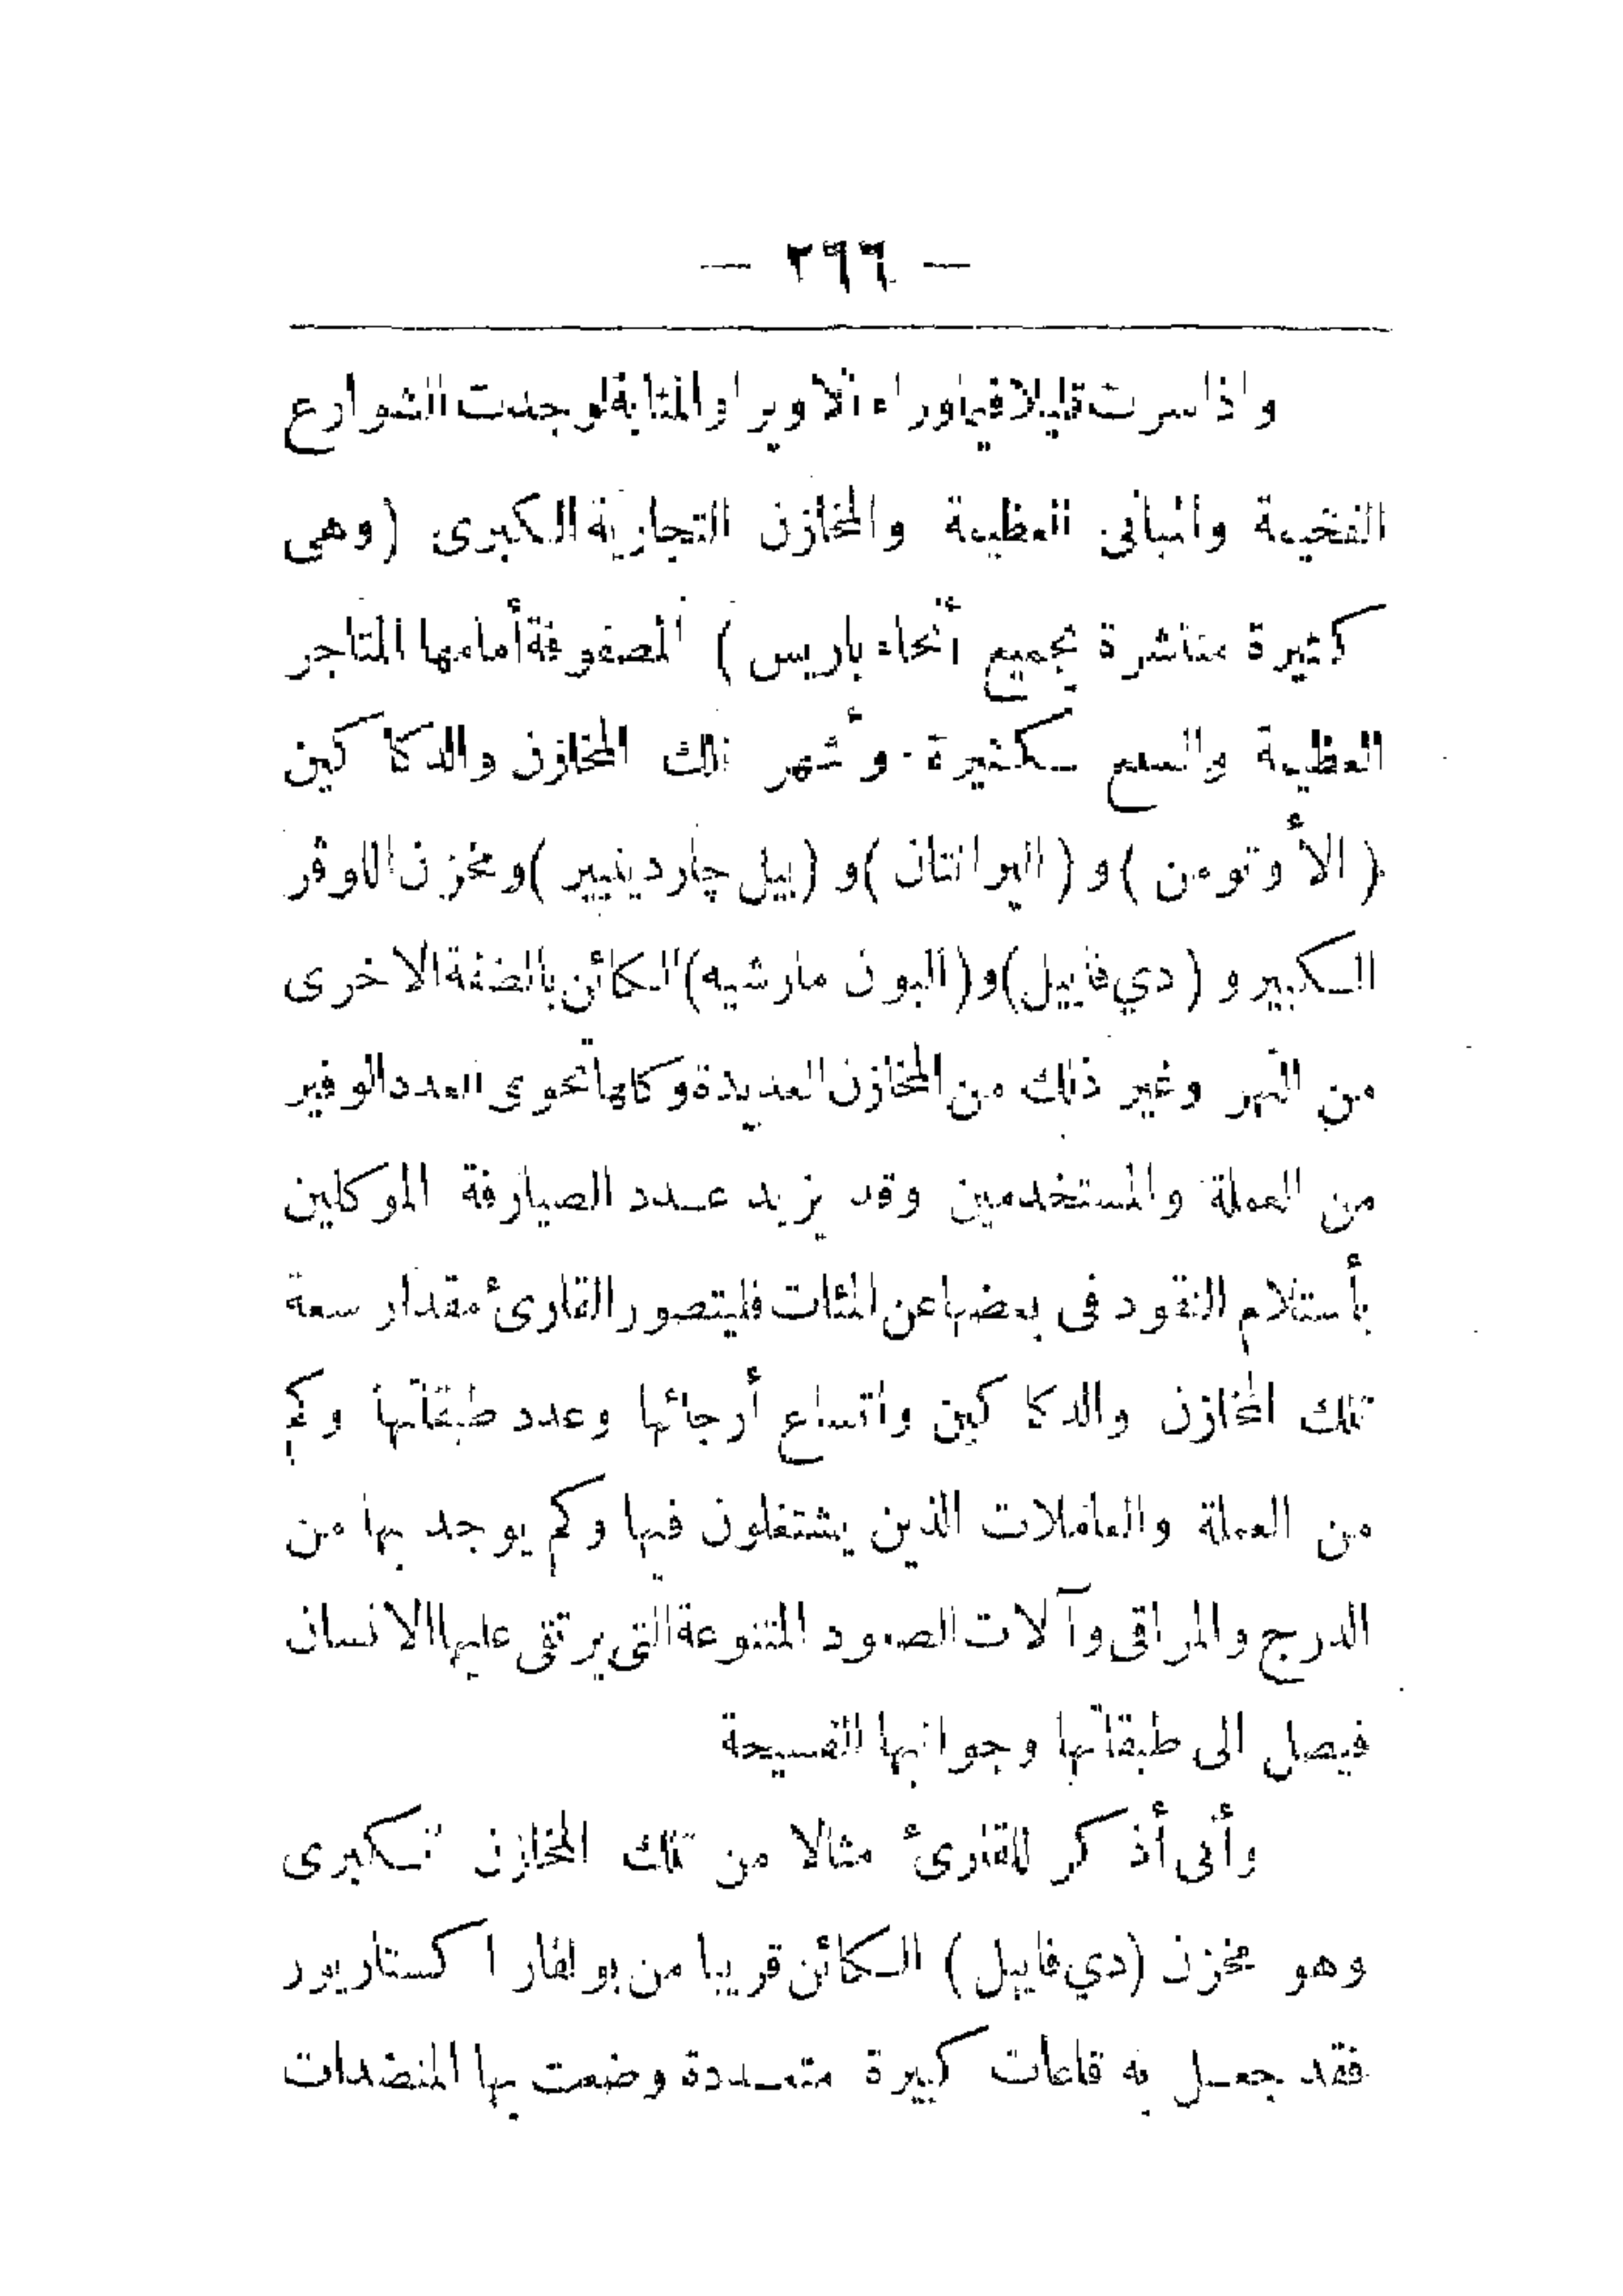 — ٢٩٦ —
واذا سرت قليلا فيما وراء الاوبرا والمثابة لوجدت الشوارع
الفخيمة والمبانى العظيمة والمخازن التجارية الكبرى (وهى
كثيرة منتشرة بجميع أنحاء باريس) المصفوفة أمامها المتاجر
العظيمة والسلع الكثيرة . وأشهر تلك المخازن والدكاكين
(الأوتومن) و (البرانتان) و (بيل چاردينيير) ومخزن اللوڤر
الكبير و (دي فاييل) و (البون مارشيه) الكائن بالضفة الاخرى
من النهر وغير ذلك من المخازن العديدة وكلها تحوى العدد الوفير
من العملة والمستخدمين وقد يزيد عدد الصيارفة الموكلين
بأستلام النقود فى بعضها عن المئات فليتصور القارئ مقدار سعة
تلك المخازن والدكاكين واتساع أرجائها وعدد طبقاتها وكم
من العملة والعاملات الذين يشتغلون فيها وكم يوجد بها من
الدرج والمراقى وآلات الصعود المتنوعة التى يرتقى عليها الانسان
فيصل الى طبقاتها وجوانبها الفسيحة
وأنى أذكر للقارئ مثالا من تلك المخازن الكبرى
وهو مخزن (دي فاييل) الكائن قريبا من بولفار اكستاريور
فقد جعل به قاعات كبيرة متعددة وضعت بها المنضدات